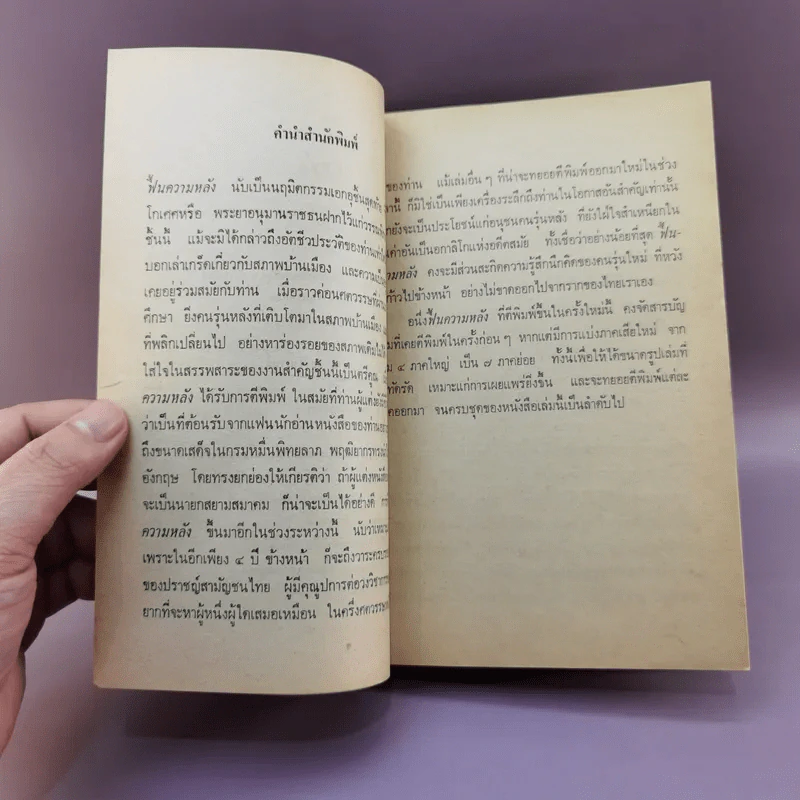 คำนำสำนักพิมพ์
ฟื้นความหลัง นับเป็นนฤมิตกรรมเอกอุชิ้นสุดท้าย
โกเศศหรือ พระยาอนุมานราชธนฝากไว้แก่วรรณ
ชิ้นนี้ แม้จะมิได้กล่าวถึงอัตชีวประวัติของท่าน
บอกเล่าเกร็ดเกี่ยวกับสภาพบ้านเมือง และความ
เคยอยู่ร่วมสมัยกับท่าน เมื่อราวค่อนศตวรรษที่
ศึกษา ยิ่งคนรุ่นหลังที่เติบโตมาในสภาพบ้านเมือง
ที่พลิกเปลี่ยนไป อย่างหาร่องรอยของสภาพเดิม
ใส่ใจในสรรพสาระของงานสำคัญชิ้นนี้เป็นตรีคูณ
ความหลัง ได้รับการตีพิมพ์ ในสมัยที่ท่านผู้แต่ง
ว่าเป็นที่ต้อนรับจากแฟนนักอ่านหนังสือของท่าน
ถึงขนาดเสด็จในกรมหมื่นพิทยลาภ พฤฒิยากรทรง
อังกฤษ โดยทรงยกย่องให้เกียรติว่า ถ้าผู้แต่งหนังสือ
จะเป็นนายกสยามสมาคม ก็น่าจะเป็นได้อย่างดี
ความหลัง ขึ้นมาอีกในช่วงระหว่างนี้ นับว่า
เพราะในอีกเพียง ๔ ปี ข้างหน้า ก็จะถึงวาระครบ
ของปราชญ์สามัญชนไทย ผู้มีคุณูปการต่อวงวิชา
ยากที่จะหาผู้หนึ่งผู้ใดเสมอเหมือน ในครึ่งศตวรรษ
ของท่าน แม้เล่มอื่น ๆ ที่น่าจะทยอยตีพิมพ์ออกมาใหม่ในช่วง
นี้ ก็มิใช่เป็นเพียงเครื่องระลึกถึงท่านในโอกาสอันสำคัญเท่านั้น
ยังจะเป็นประโยชน์แก่อนุชนคนรุ่นหลัง ที่ยังใฝ่ใจสำเหนียกใน
ค่าอันเป็นอกาลิโกแห่งอดีตสมัย ทั้งเชื่อว่าอย่างน้อยที่สุด ฟื้น-
ความหลัง คงจะมีส่วนสะกิดความรู้สึกนึกคิดของคนรุ่นใหม่ ที่หวัง
ก้าวไปข้างหน้า อย่างไม่ขาดออกไปจากรากของไทยเราเอง
อนึ่งฟื้นความหลัง ที่ตีพิมพ์ขึ้นในครั้งใหม่นี้ คงจัดสารบัญ
ที่เคยตีพิมพ์ในครั้งก่อน ๆ หากแต่มีการแบ่งภาคเสียใหม่ จาก
๔ ภาคใหญ่ เป็น ๗ ภาคย่อย ทั้งนี้เพื่อให้ได้ขนาดรูปเล่มที่
เหมาะแก่การเผยแพร่ยิ่งขึ้น และจะทยอยตีพิมพ์แต่ละ
ออกมา จนครบชุดของหนังสือเล่มนี้เป็นลำดับไป